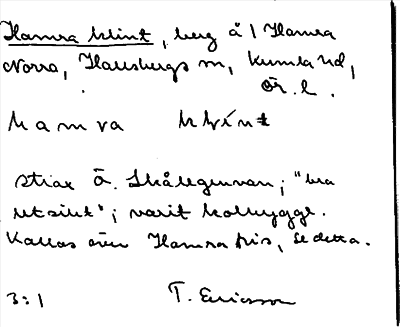 Hamra klint, berg å 1 Hamra
Norra, Hallsbergs sn, Kumla hd,
Ör. l.
hamra klint
strax Ö. Skålegruvan; "bra
utsikt"; varit kolbygge.
Kallas även Hamra , se detta.
3:1 T. Ericsson